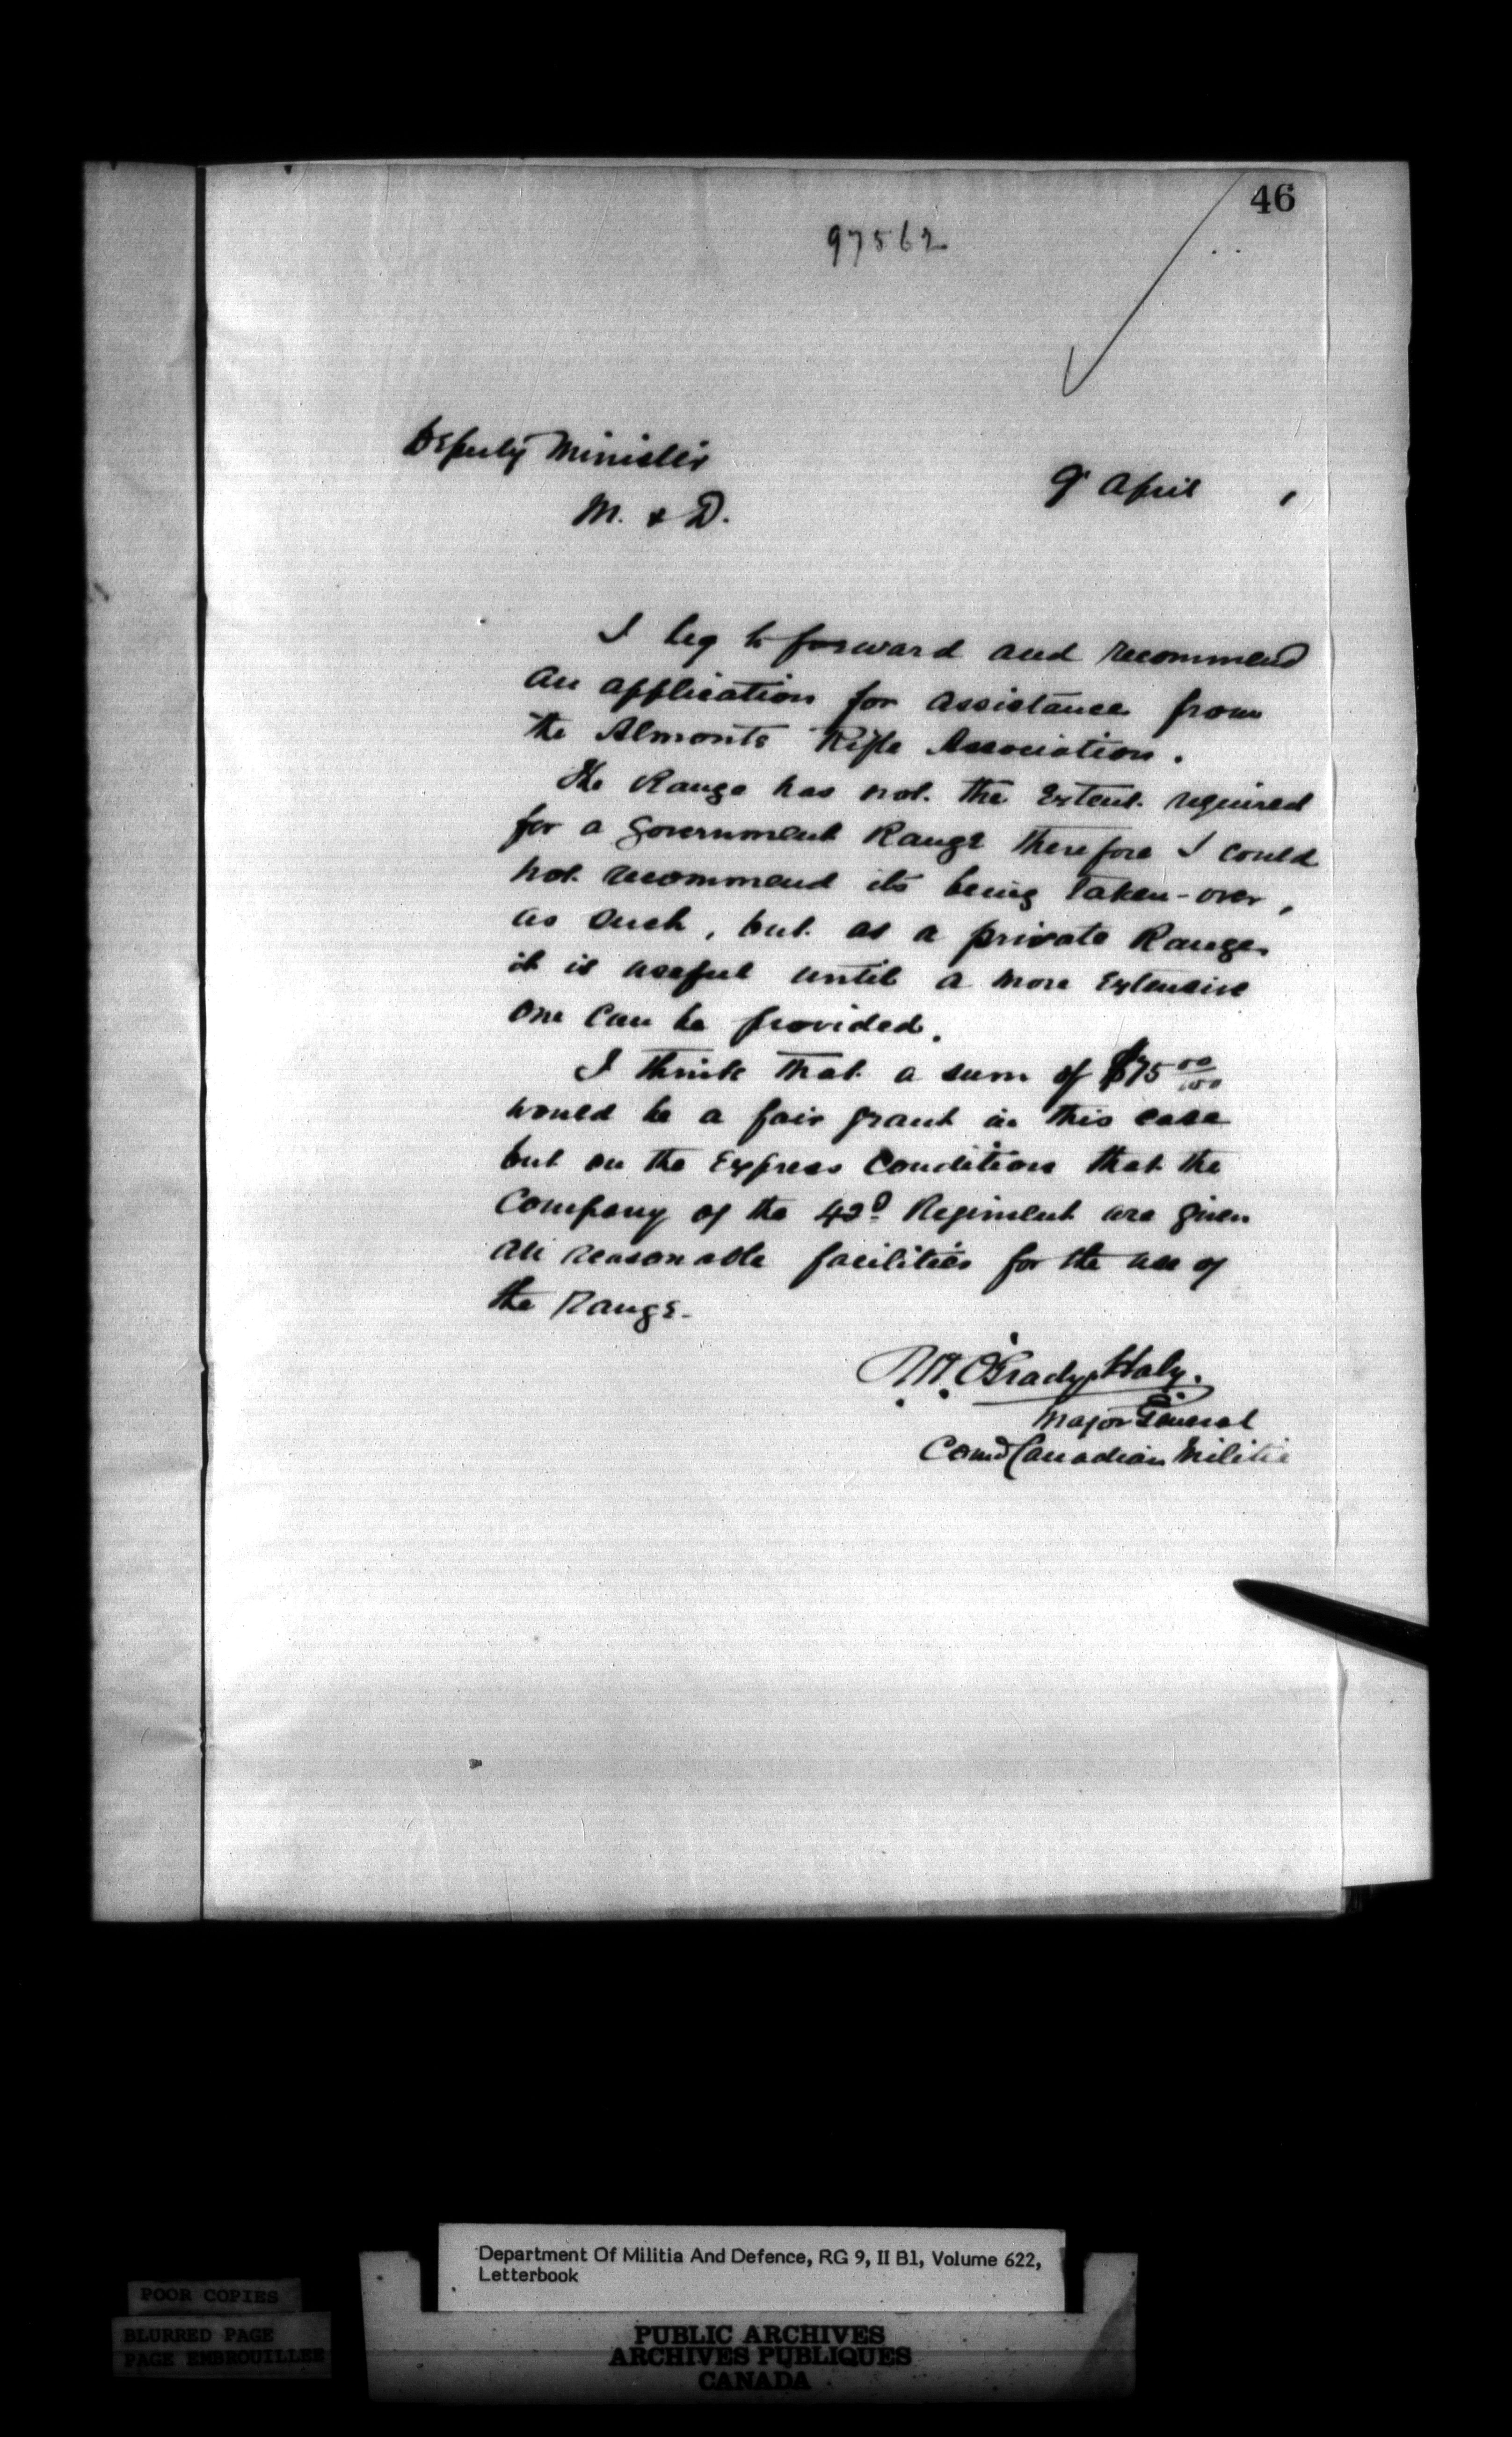 46
97562
Deputy Minister
M. & D.
9' April 1
I beg to forward and recommend
an application for assistance from
the Almonte Rifle Association.
The Range has not the Extent required
for a Government Range therefore I could
not recommend its being taken-over,
as such, but as a private Range
it is useful until a more Extensive
one can be provided.
I think that a sum of $75 00/100
would be a fair grant in this case
but on the Express Condition that the
Company of the 42D Regiment are given
all reasonable facilities for the use of
the Range.
M. O'Grady Haly.
Major General
Comd Canadian Militia
Department Of Militia And Defence, RG 9, II B1, Volume 622,
Letterbook
POOR COPIES
BLURRED PAGE
PAGE EMBROUILLEE
PUBLIC ARCHIVES
ARCHIVES PUBLIQUES
CANADA